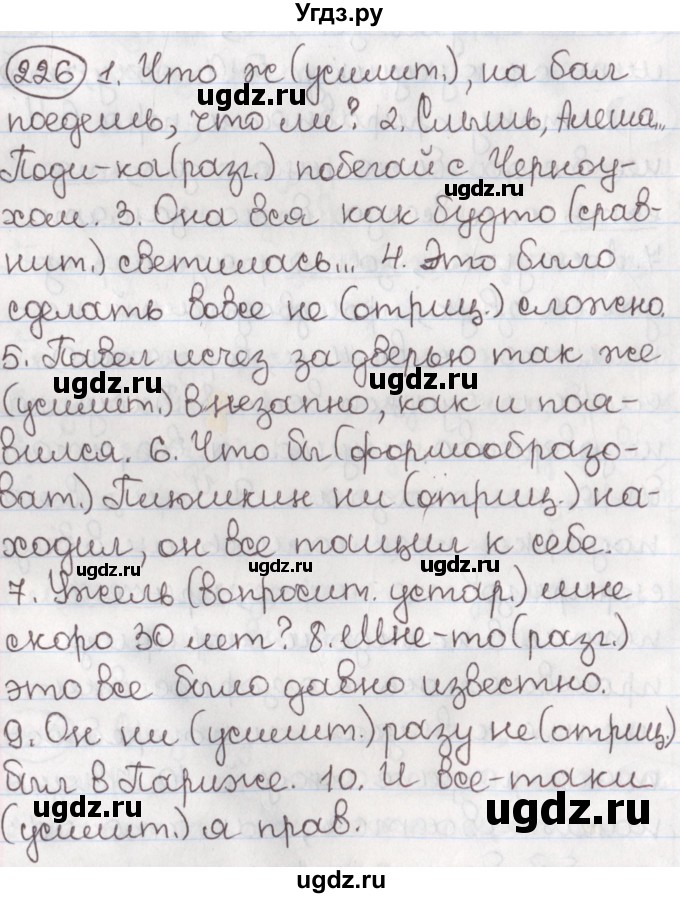 Угдз.ру
226 1. Что ж (усилит.), на бал
ugdz.ru
поедешь, что ли? 2. Слышь, Алеша...
Поди-ка (разг.) побегай с Черноу-
ugdz.ru
хом. 3. Она вся как будто (срав-
ugdz.ru
нит.) светилась... 4. Это было
ugdz.ru
сделать вовсе не (отриц.) сложно.
5. Павел исчез за дверью так же
ugdz.ru ugdz.ru
(усилит.) внезапно, как и поя-
вился. 6. Что бы (формообразо-
ват.) Плюшкин ни (отриц.) на-
ходил, он все тащил к себе.
ugdz.ru ugdz.ru ugdz.ru
7. Ужель (вопросит. устар.) мне
скоро 30 лет? 8. Мне-то (разг.)
ugdz.ru
это все было давно известно.
9. Он ни (усилит.) разу не (отриц.)
ugdz.ru
был в Париже. 10. И все-таки
ugdz.ru ugdz.ru
(усилит.) я прав.
ugdz.ru